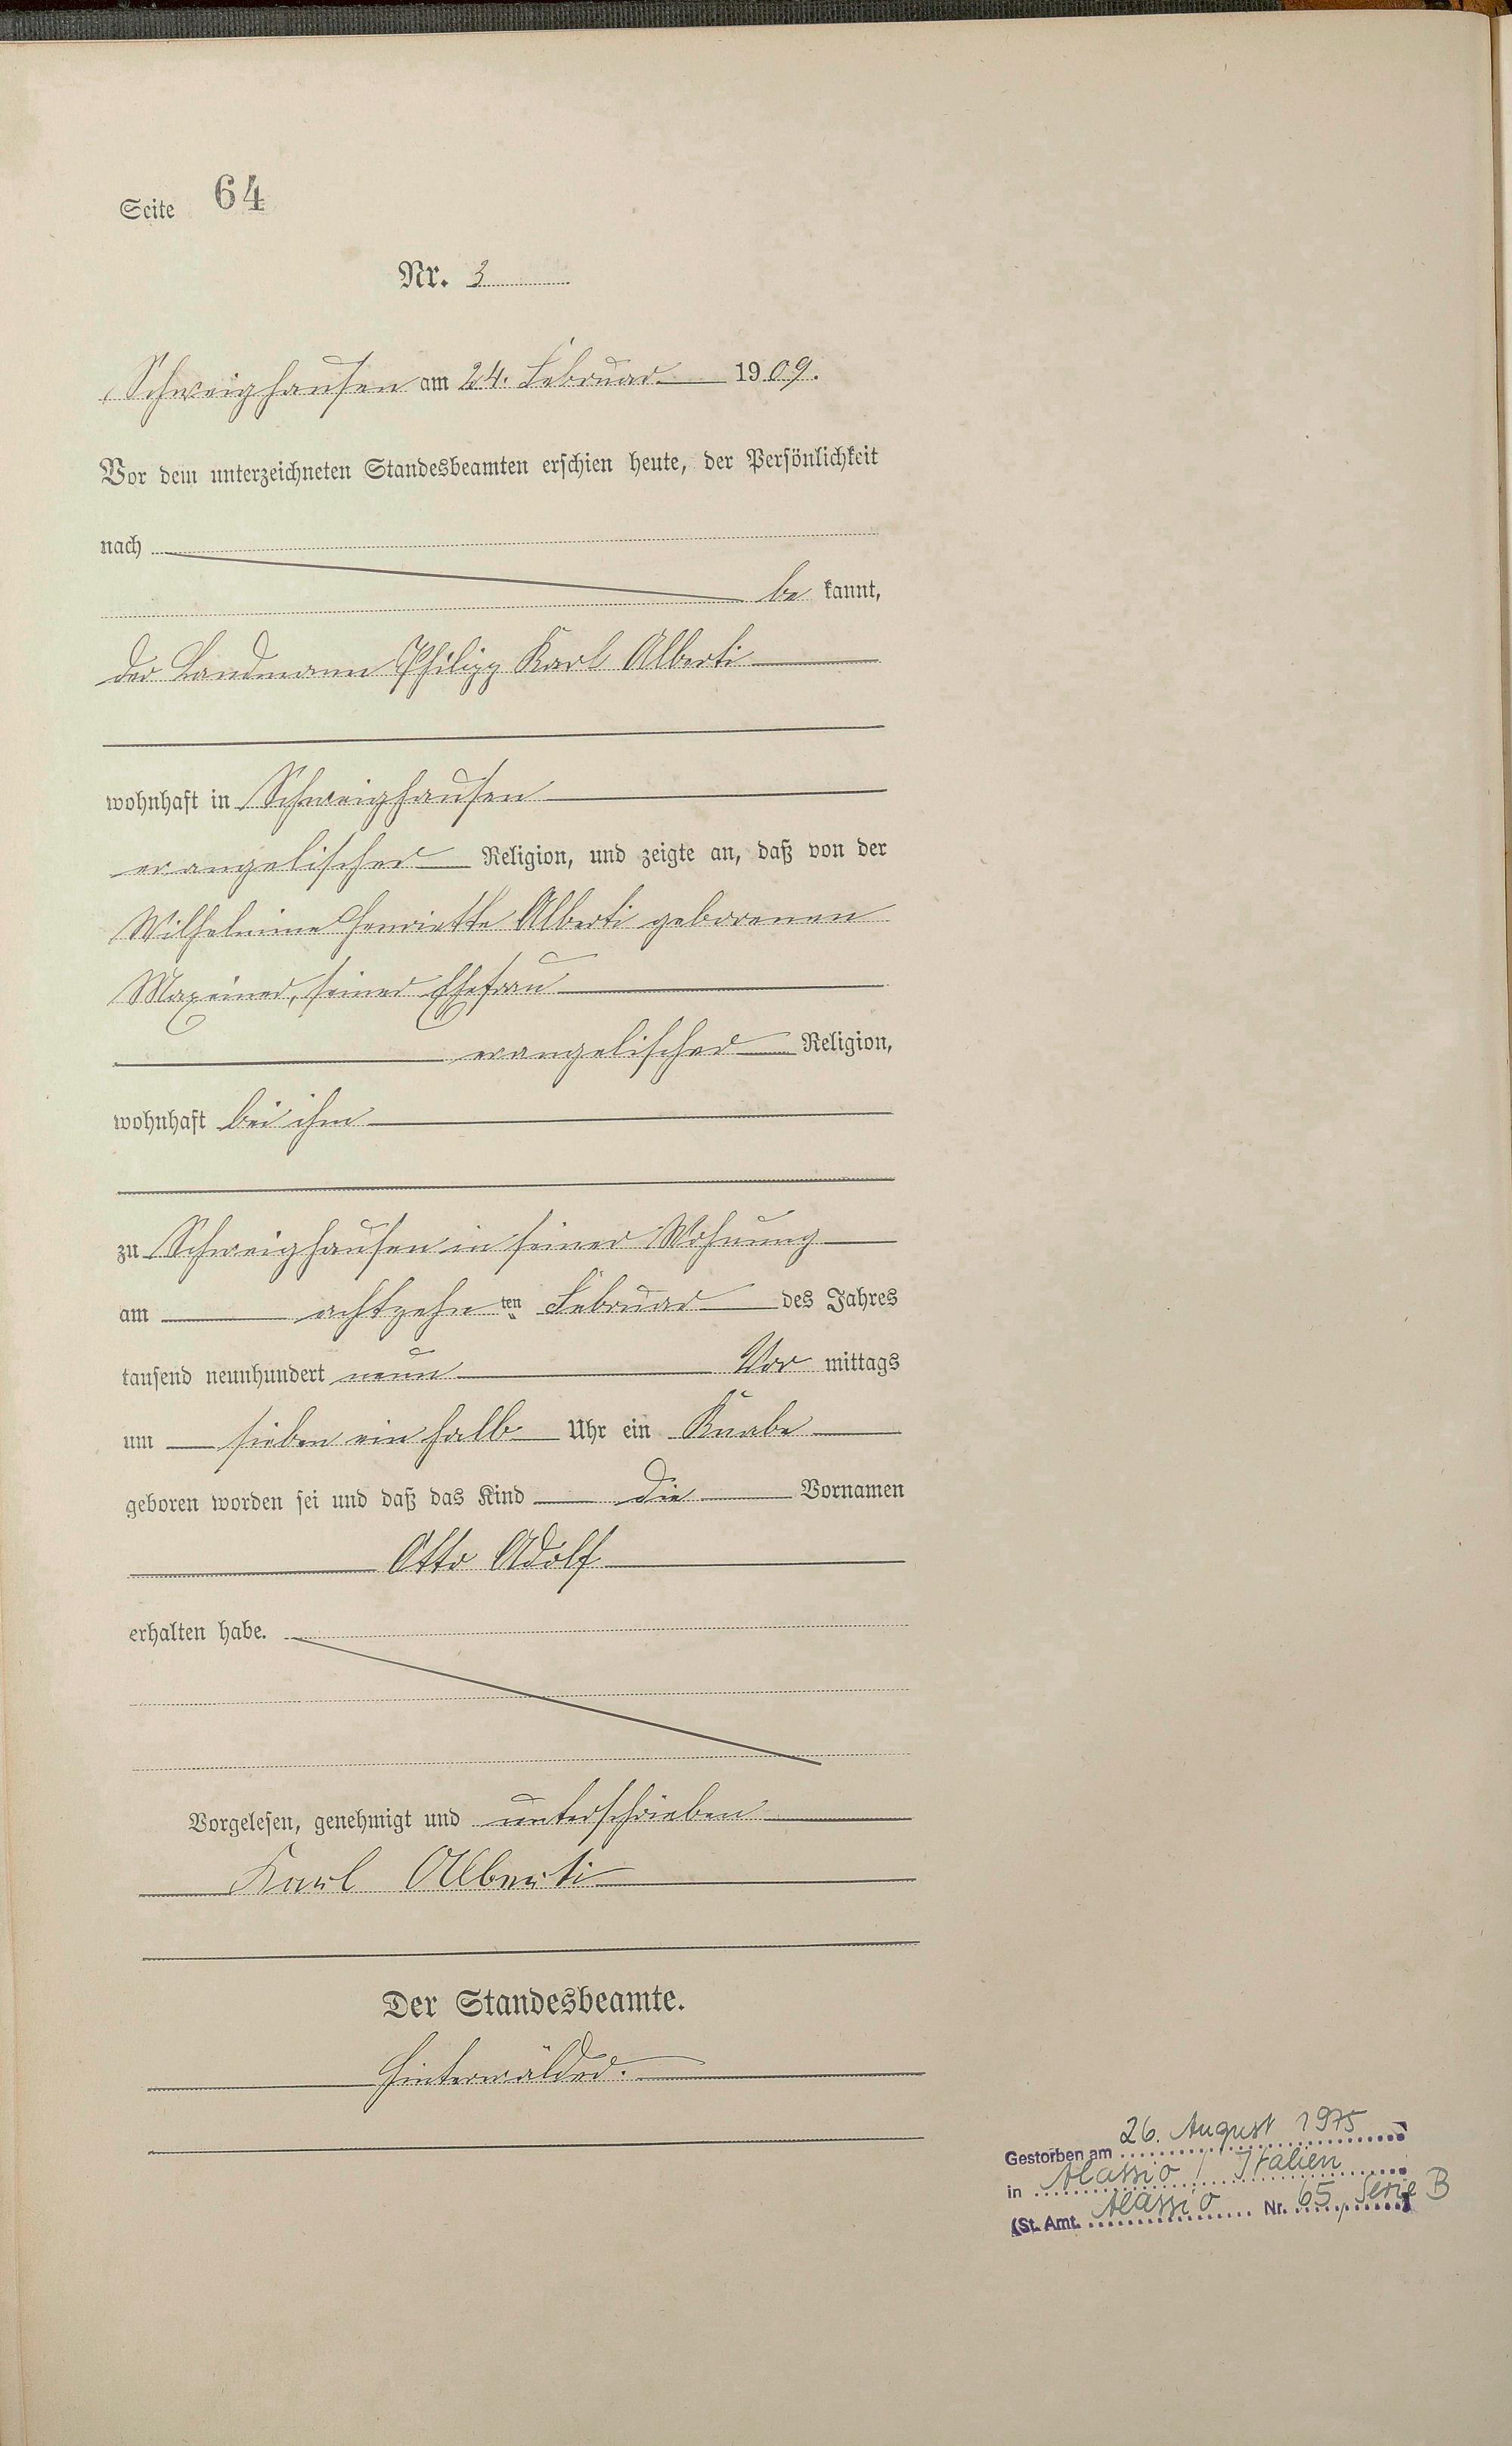 Seite 64
Nr. 3
Schweighausen am 24. Februar 1909.
Vor dem unterzeichneten Standesbeamten erschien heute, der Persönlichkeit
nach
be kannt,
der Landmann Philipp Karl Alberti
wohnhaft in Schweighausen
evangelischer Religion, und zeigte an, daß von der
Wilhelmine Henriette Alberti geborenen
Maxeiner, seiner Ehefrau
evangelischer Religion,
wohnhaft bei ihm
zu Schweighausen in seiner Wohnung
am achtzehn ten Februar des Jahres
tausend neunhundert neun Vor mittags
um sieben ein halb Uhr ein Knabe
geboren worden sei und daß das Kind die Vornamen
Otto Adolf
erhalten habe.
Vorgelesen, genehmigt und unterschrieben
Karl Alberti
Der Standesbeamte.
Hinterwälder.
Gestorben am 26. August 1975
in Alassio / Italien
(St. Amt. Alassio Nr. 65, Serie B